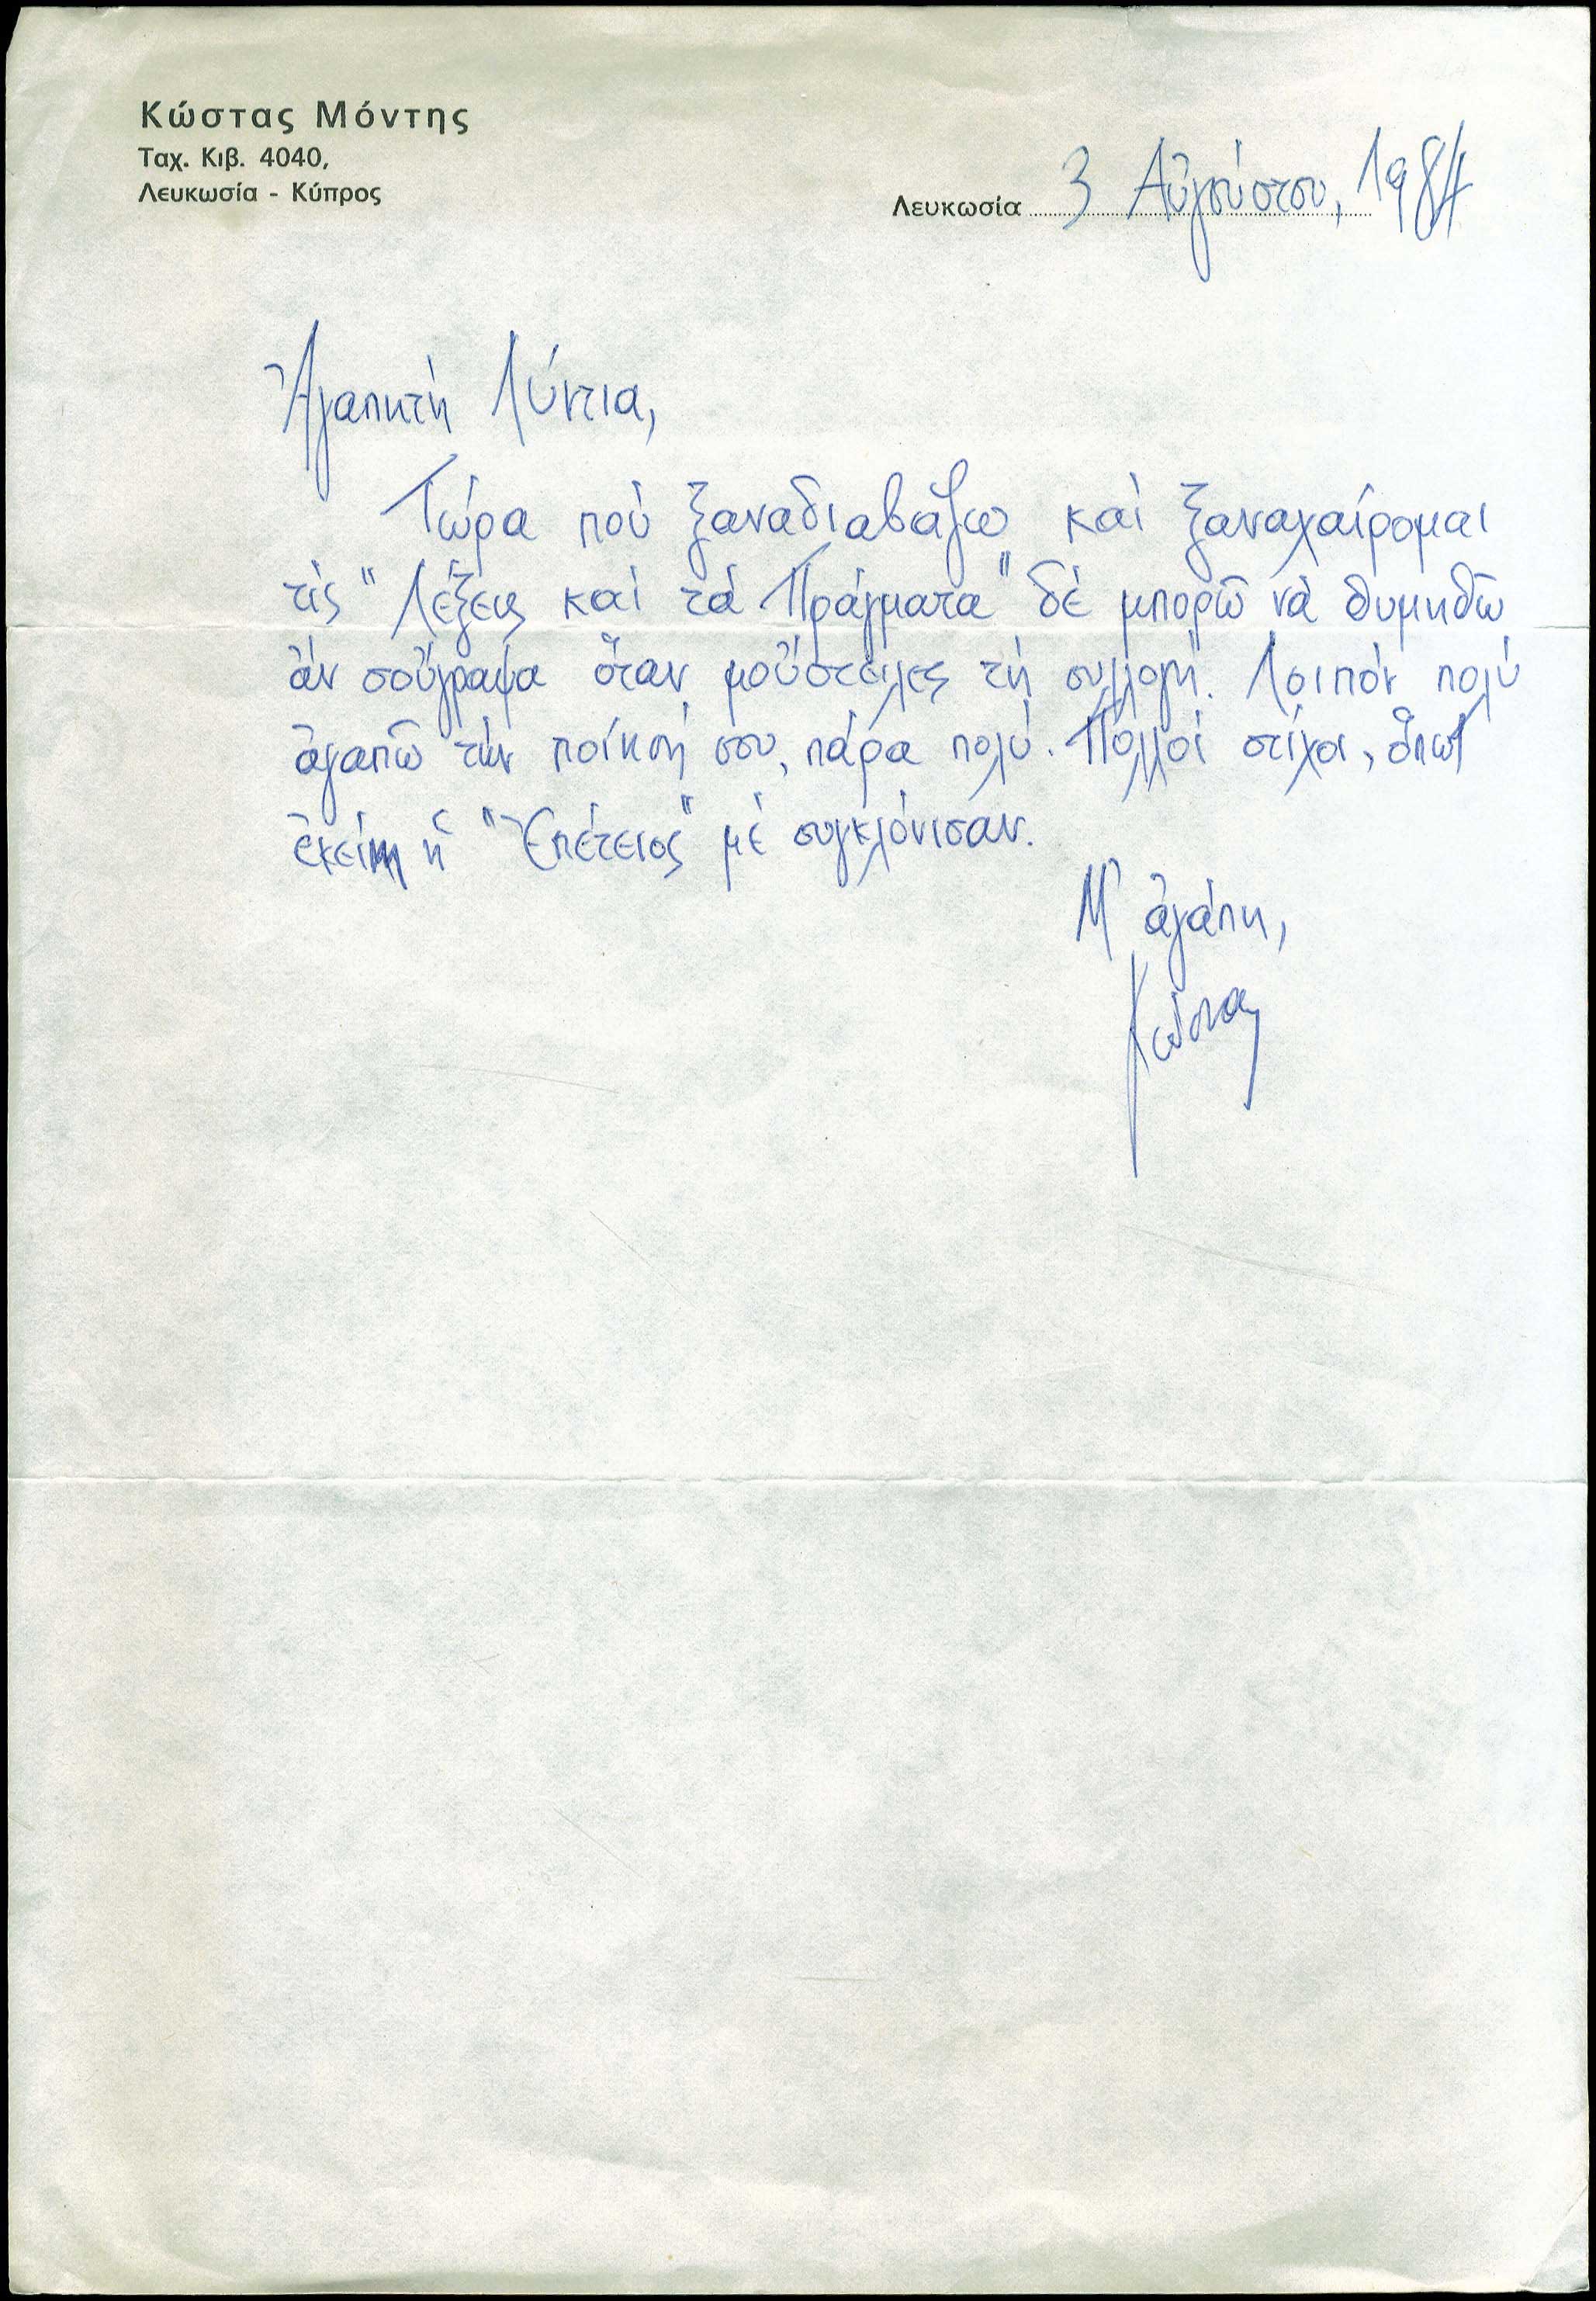 Κώστας Μόντης
Ταχ. Κιβ. 4040,
Λευκωσία - Κύπρος
Λευκωσία 3 Αὐγούστου, 1984
Ἀγαπητή Λύντια,
Τώρα πού ξαναδιαβάζω καί ξαναχαίρομαι
τίς "Λέξεις καί τά Πράγματα" δέ μπορῶ νά θυμηθῶ
ἄν σοὔγραψα ὅταν μοὔστειλες τή συλλογή. Λοιπόν πολύ
ἀγαπῶ τήν ποίησή σου, πάρα πολύ. Πολλοί στίχοι, ὅπως
ἐκείνη ἡ "Ἐπέτειος" μέ συγκλόνισαν.
Μ' ἀγάπη,
Κώστας